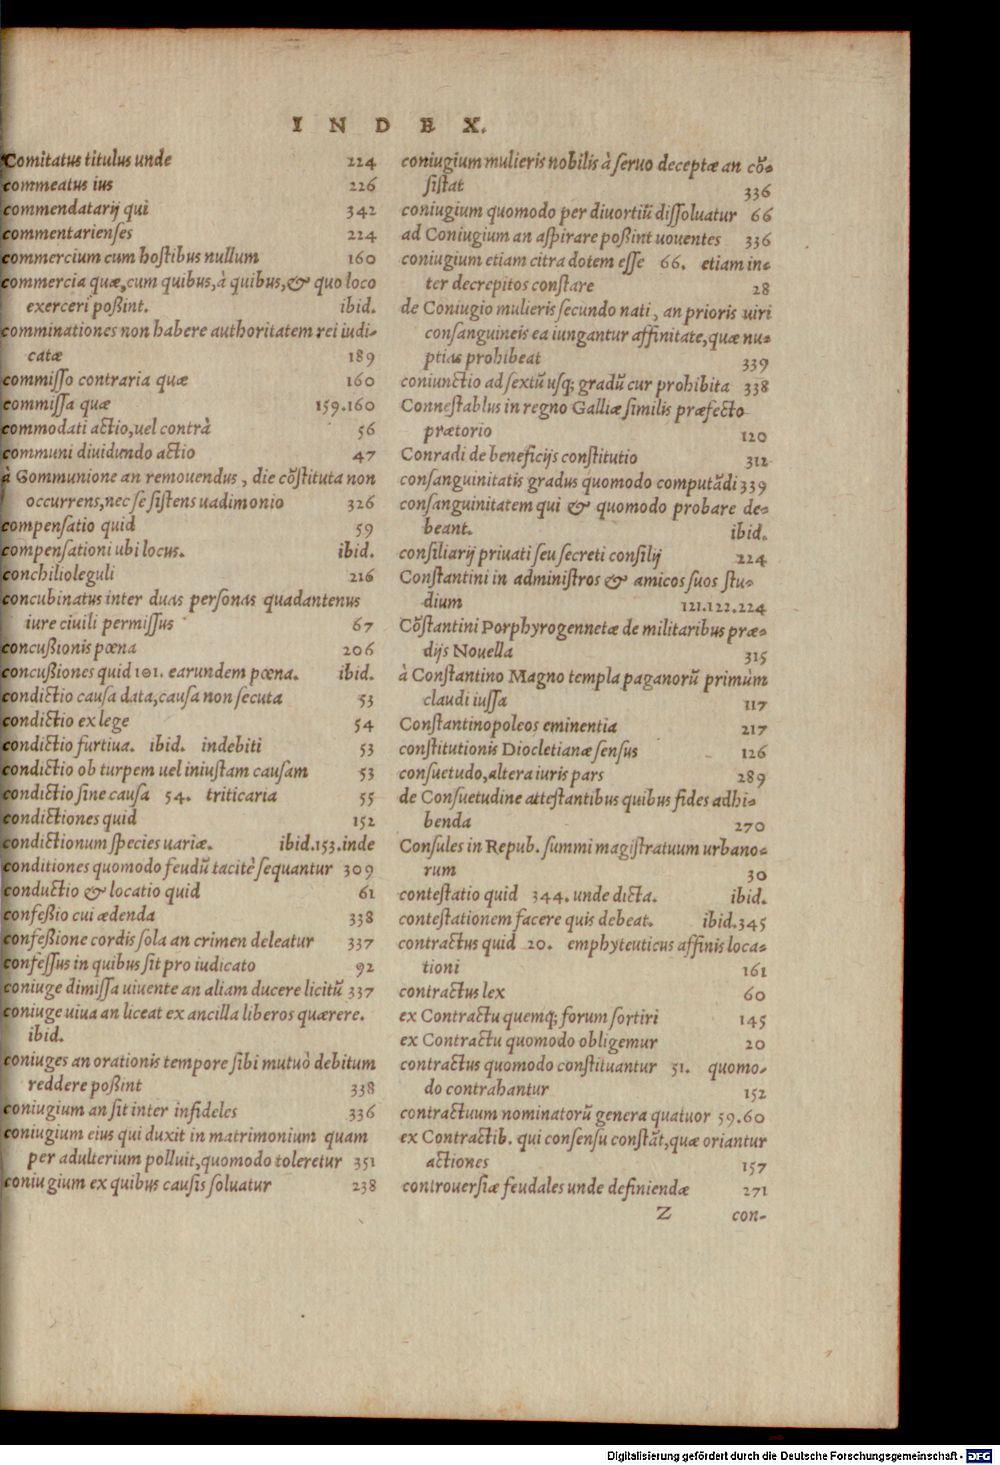 INDEX.
Comitatus titulus unde 224
commeatus ius 226
commendatarij qui 342
commentarienses 224
commercium cum hostibus nullum 160
commercia quæ, cum quibus, à quibus, & quo loco
exerceri poßint. ibid.
comminationes non habere authoritatem rei iudi-
catæ 189
commisso contraria quæ 160
commissa quæ 159.160
commodati actio, uel contrà 56
communi diuidundo actio 47
à Communione an remouendus, die cõstituta non
occurrens, nec se sistens uadimonio 326
compensatio quid 59
compensationi ubi locus. ibid.
conchilioleguli 216
concubinatus inter duas personas quadantenus
iure ciuili permissus 67
concußionis pœna 206
concußiones quid 101. earundem pœna. ibid.
condictio causa data, causa non secuta 53
condictio ex lege 54
condictio furtiua. ibid. indebiti 53
condictio ob turpem uel iniustam causam 53
condictio sine causa 54. triticaria 55
condictiones quid 152
condictionum species uariæ. ibid.153.inde
conditiones quomodo feudũ tacitè sequantur 309
conductio & locatio quid 61
confeßio cui ædenda 338
confeßione cordis sola an crimen deleatur 337
confessus in quibus sit pro iudicato 92
coniuge dimissa uiuente an aliam ducere licitũ 337
coniuge uiua an liceat ex ancilla liberos quærere.
ibid.
coniuges an orationis tempore sibi mutuò debitum
reddere poßint 338
coniugium an sit inter infideles 336
coniugium eius qui duxit in matrimonium quam
per adulterium polluit, quomodo toleretur 351
coniugium ex quibus causis soluatur 238
coniugium mulieris nobilis à seruo deceptæ an cõ-
sistat 336
coniugium quomodo per diuortiũ dissoluatur 66
ad Coniugium an aspirare poßint uouentes 336
coniugium etiam citra dotem esse 66. etiam in-
ter decrepitos constare 28
de Coniugio mulieris secundo nati, an prioris uiri
consanguineis ea iungantur affinitate, quæ nu-
ptias prohibeat 339
coniunctio ad sextũ usq; gradũ cur prohibita 338
Connestablus in regno Galliæ similis præfecto
prætorio 120
Conradi de beneficijs constitutio 312
consanguinitatis gradus quomodo computãdi 339
consanguinitatem qui & quomodo probare de-
beant. ibid.
consiliarij priuati seu secreti consilij 224
Constantini in administros & amicos suos stu-
dium 121.122.224
Cõstantini Porphyrogennetæ de militaribus præ-
dijs Nouella 315
à Constantino Magno templa paganorũ primùm
claudi iussa 117
Constantinopoleos eminentia 217
constitutionis Diocletianæ sensus 126
consuetudo, altera iuris pars 289
de Consuetudine attestantibus quibus fides adhi-
benda 270
Consules in Repub. summi magistratuum urbano-
rum 30
contestatio quid 344. unde dicta. ibid.
contestationem facere quis debeat. ibid.345
contractus quid 20. emphyteuticus affinis loca-
tioni 161
contractus lex 60
ex Contractu quemq; forum sortiri 145
ex Contractu quomodo obligemur 20
contractus quomodo constituantur 51. quomo-
do contrahantur 152
contractuum nominatorũ genera quatuor 59.60
ex Contractib. qui consensu constãt, quæ oriantur
actiones 157
controuersiæ feudales unde definiendæ 271
Z con-
Digitalisierung gefördert durch die Deutsche Forschungsgemeinschaft - DFG